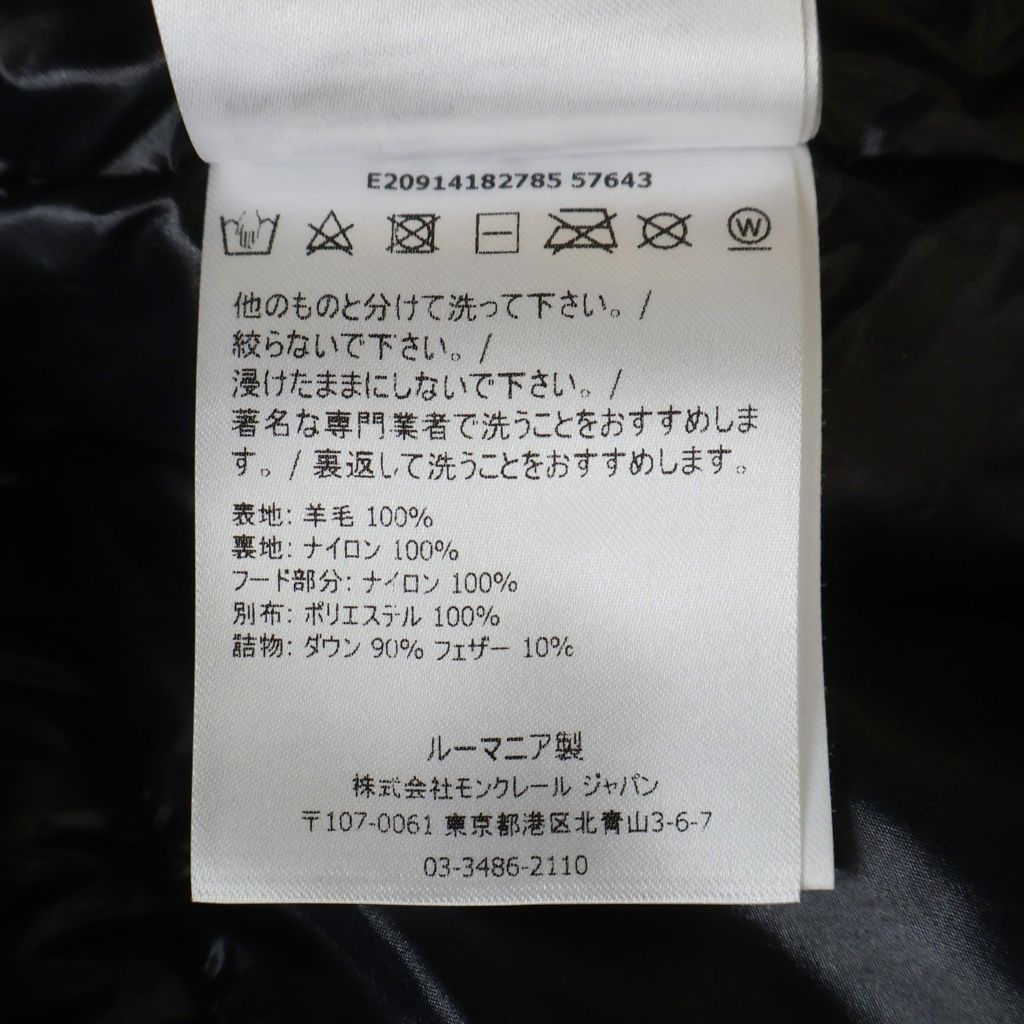 E20914182785 57643
W
他のものと分けて洗って下さい。/
絞らないで下さい。/
浸けたままにしないで下さい。/
著名な専門業者で洗うことをおすすめしま
す。/ 裏返して洗うことをおすすめします。
表地: 羊毛 100%
裏地: ナイロン 100%
フード部分: ナイロン 100%
別布: ポリエステル 100%
詰物: ダウン 90% フェザー 10%
ルーマニア製
株式会社モンクレール ジャパン
〒107-0061 東京都港区北青山3-6-7
03-3486-2110